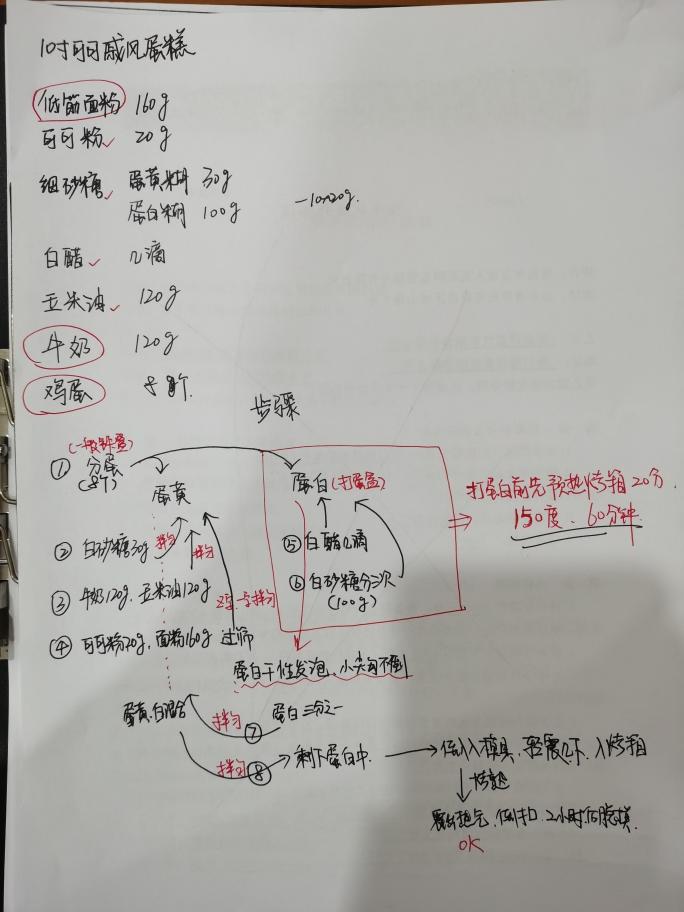 10寸可可戚风蛋糕
低筋面粉 160g
可可粉 20g
细砂糖 蛋黄糊 30g
蛋白糊 100g -10~20g.
白醋 几滴
玉米油 120g
牛奶 120g
鸡蛋 8个.
步骤
①分蛋
(8个)
蛋黄
蛋白(打蛋盆)
打蛋白前先预热烤箱20分.
150度、60分钟
②白砂糖30g 拌匀
③牛奶120g、玉米油120g 拌匀
④可可粉20g、面粉160g 过筛
⑤白醋几滴
⑥白砂糖分三次
(100g)
蛋白干性发泡、小尖勾不倒
蛋黄、白混合 拌匀 ⑦ 蛋白三分之一
拌匀 ⑧ 剩下蛋白中. 倒入模具、轻震几下、入烤箱
烤熟
震出热气、倒扣、2小时后脱模.
OK